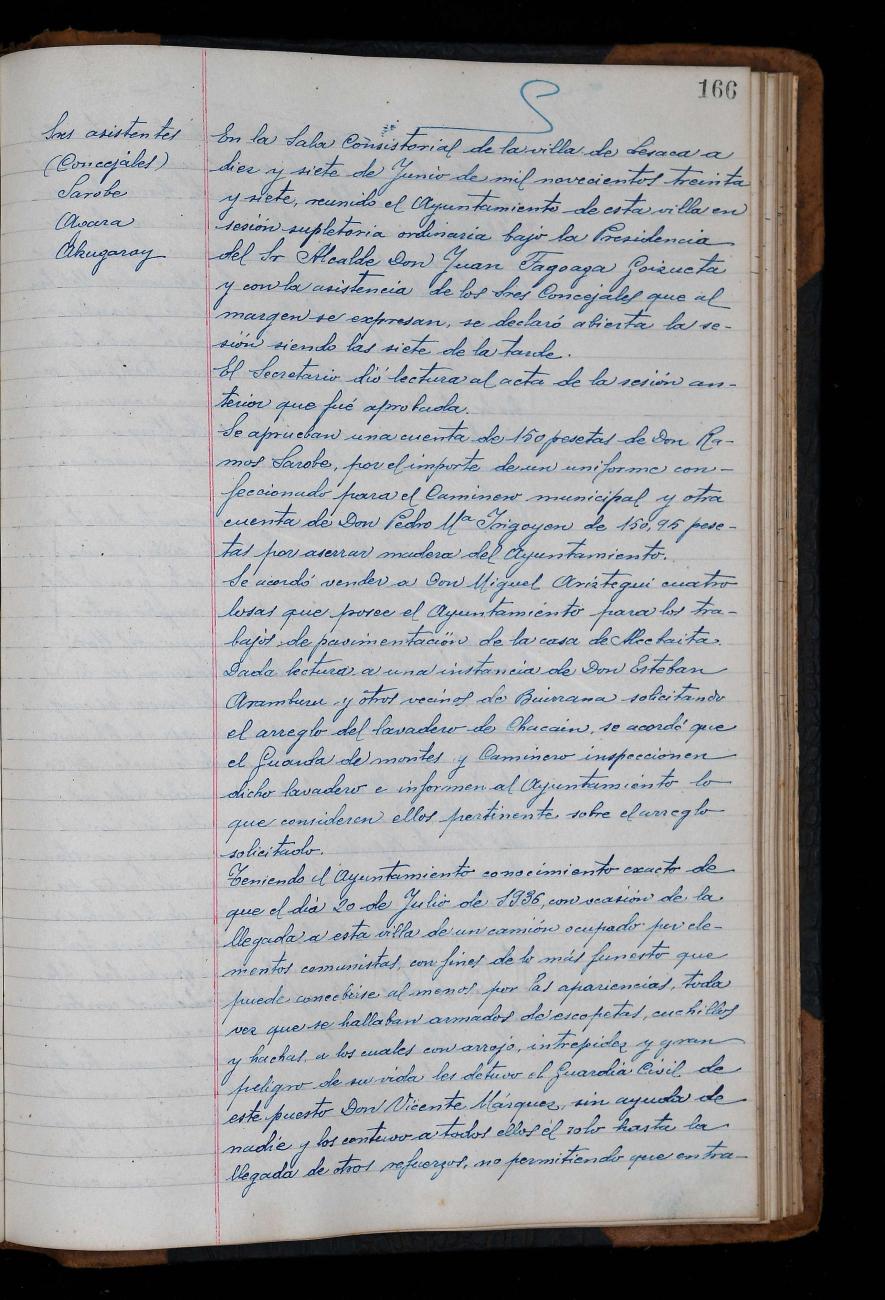 166
Sres asistentes
(Concejales)
Sarobe
Azara
En la Sala Consistorial de la villa de Lesaca a
diez y siete de Junio de mil novecientos treinta
y siete, reunido el Ayuntamiento de esta villa en
sesión supletoria ordinaria bajo la Presidencia
del Sr Alcalde Don Juan Tagoaga Goizueta
y con la asistencia de los Sres Concejales que al
margen se expresan, se declaró abierta la se-
sión siendo las siete de la tarde.
El Secretario dió lectura al acta de la sesión an-
terior que fué aprobada.
Se aprueban una cuenta de 150 pesetas de Don Ra-
mos Sarobe, por el importe de un uniforme con-
feccionado para el Caminero municipal y otra
cuenta de Don Pedro Mª Irigoyen de 150,95 pese-
tas por aserrar madera del Ayuntamiento.
Se acordó vender a Don Miguel Ariztegui cuatro
losas que posee el Ayuntamiento para los tra-
bajos de pavimentación de la casa de
Dada lectura a una instancia de Don Esteban
Aramburu y otros vecinos de Biurrana solicitando
el arreglo del lavadero de Chacain, se acordó que
el Guarda de montes y Caminero inspeccionen
dicho lavadero e informen al Ayuntamiento lo
que consideren ellos pertinente sobre el arreglo
solicitado.
Teniendo el Ayuntamiento conocimiento exacto de
que el día 20 de Julio de 1936, con ocasión de la
llegada a esta villa de un camión ocupado por ele-
mentos comunistas, con fines de lo más funesto que
puede concebirse al menos por las apariencias, toda
vez que se hallaban armados de escopetas, cuchillos
y hachas, a los cuales con arrojo, intrepidez y gran
peligro de su vida les detuvo el Guardia Civil de
este puesto Don Vicente Márquez, sin ayuda de
nadie y los contuvo a todos ellos él solo hasta la
llegada de otros refuerzos, no permitiendo que entra-